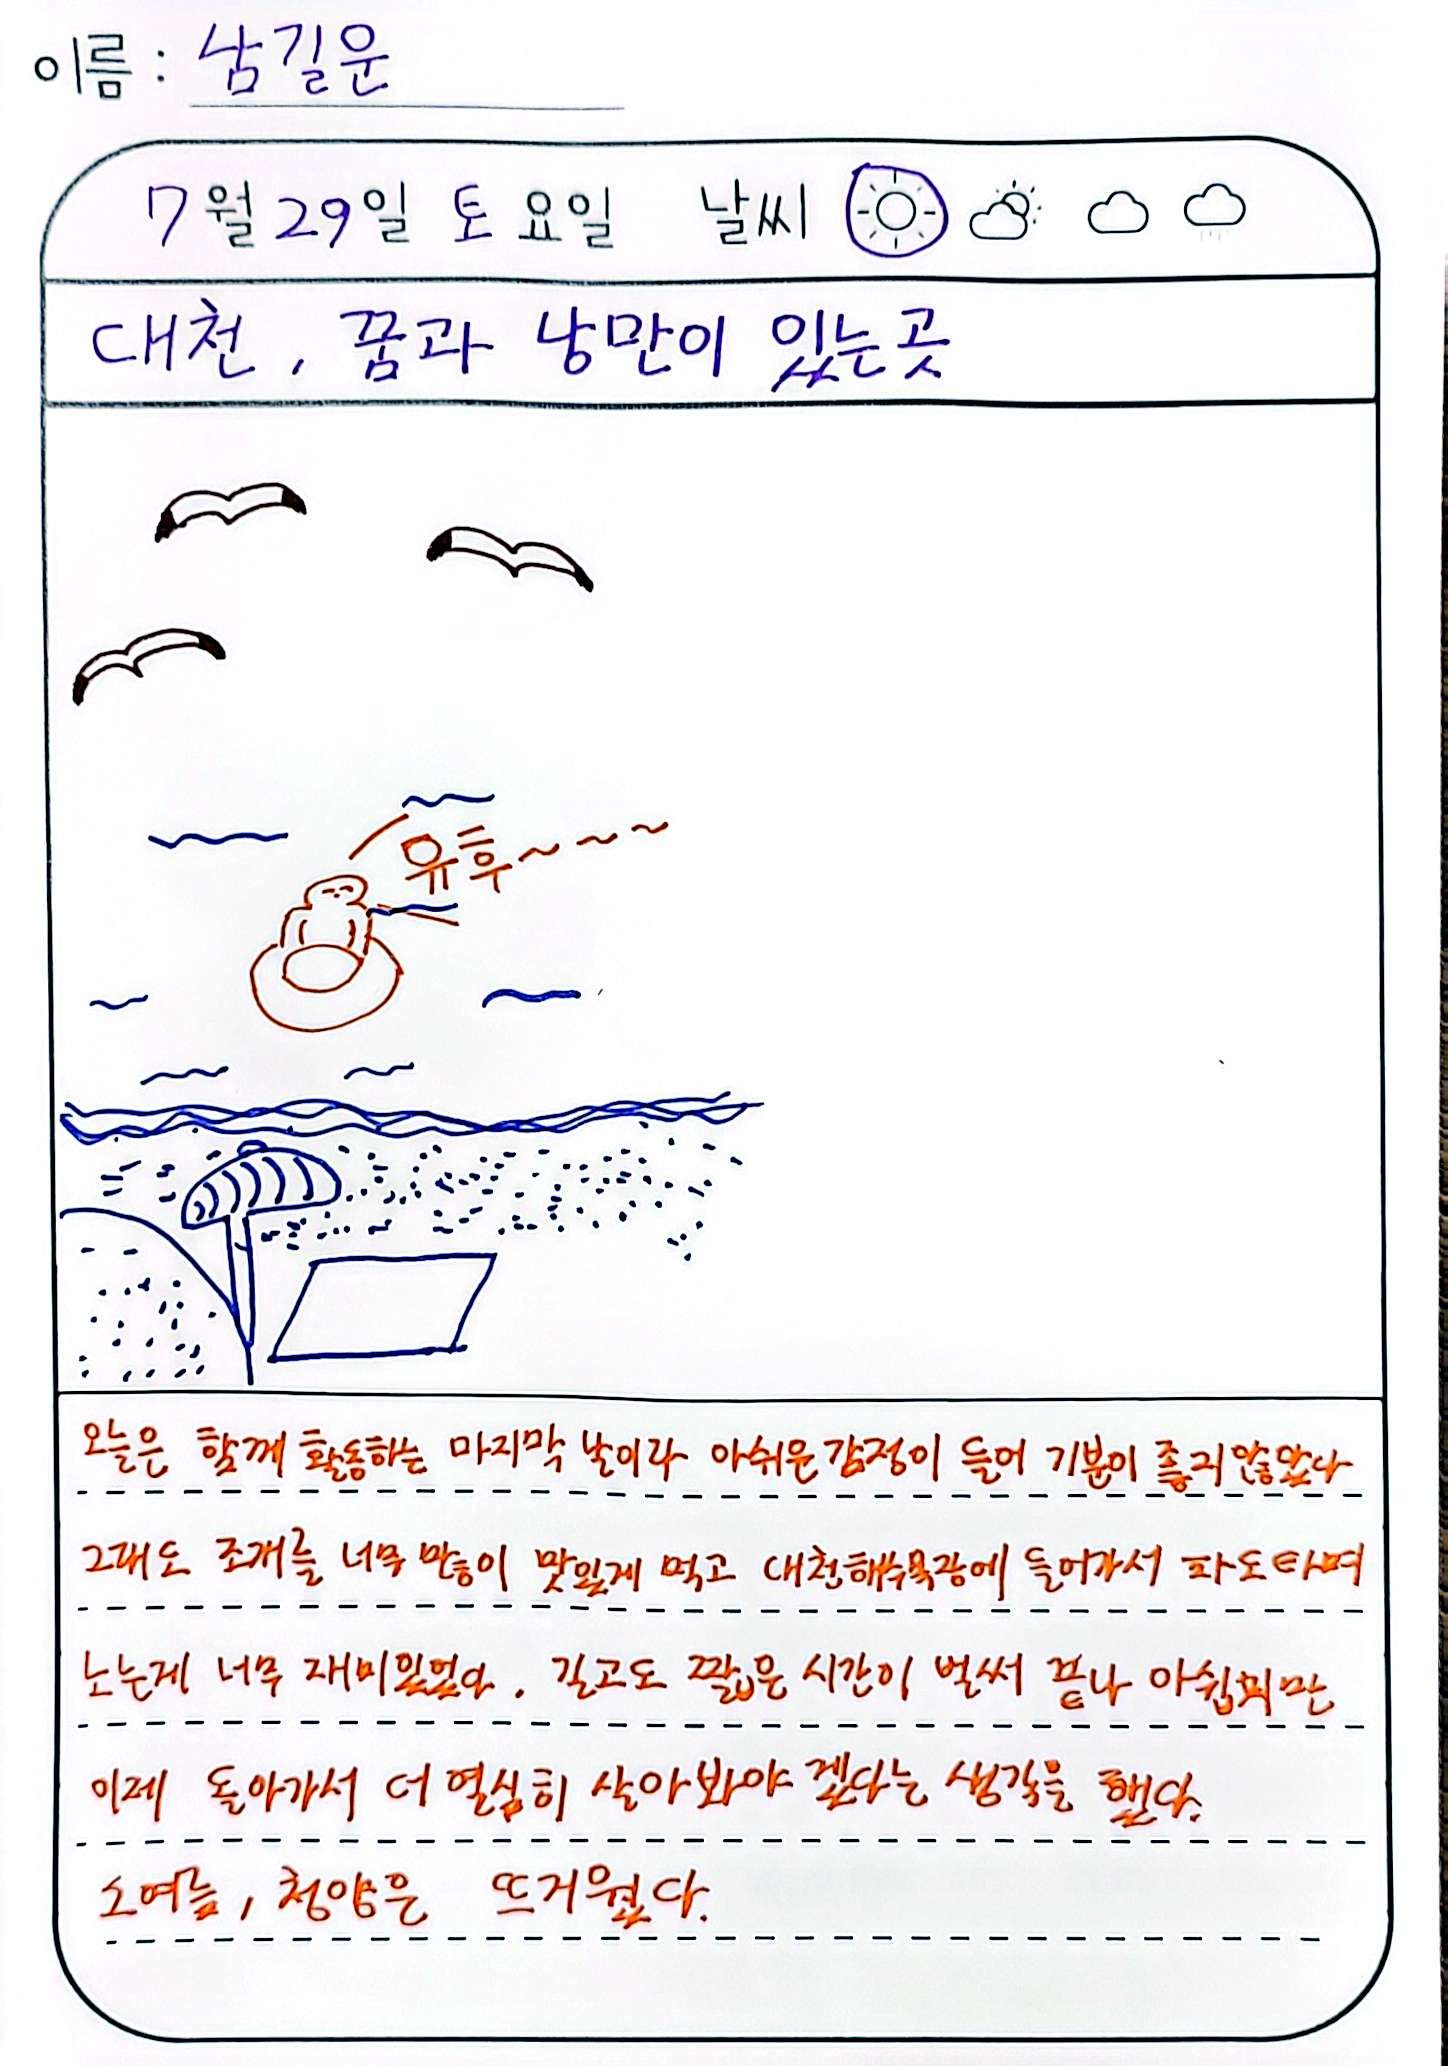 이름 : 남길운
7월 29일 토요일 날씨
대천, 꿈과 낭만이 있는곳
유후~~~~
오늘은 함께 활동하는 마지막 날이라 아쉬운감정이 들어 기분이 좋지않았다
그래도 조개를 너무 많이 맛있게 먹고 대천해수욕장에 들어가서 파도타며
노는게 너무 재미있었다. 길고도 짧은 시간이 벌써 끝나 아쉽지만
이제 돌아가서 더 열심히 살아봐야 겠다는 생각을 했다.
소여름, 청양은 뜨거웠다.